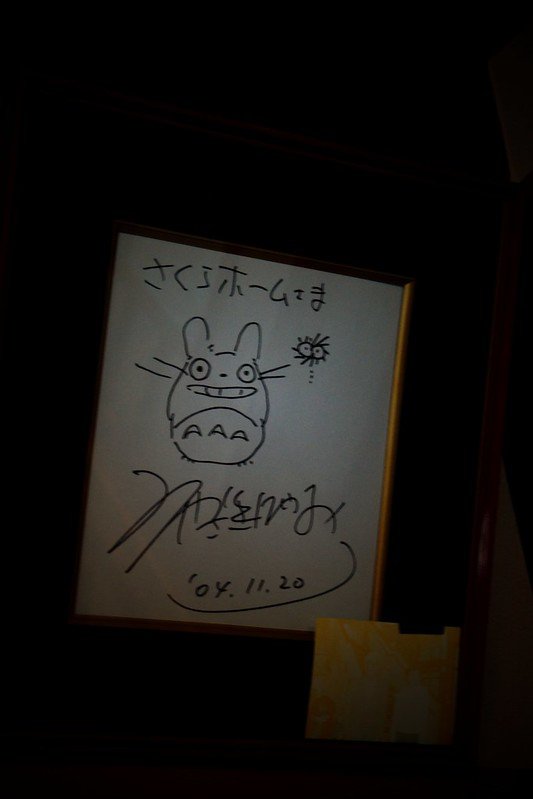 さくらホームさま
みやざきはやお
'04.11.20